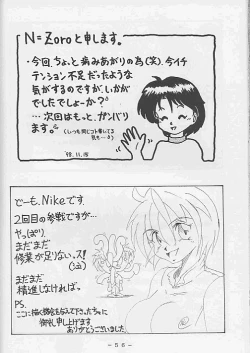 N=Zoroと申します。
・今回、ちょっと病みあがりの為(笑)、今イチ
テンション不足だったような
気がするのですが、いかが
でしたでしょーか?
…次回はもっと、ガンバリ
ます。
(いつも同じコト書いてる
気も…)
'98.11.15
でーも。Nikeです
2回目の参戦ですが…
やっぱり
まだまだ
修業が足りないっス!
まだまだ
精進しなければ。
PS.
ここに描く機会を与えて下さったっちに
御礼申し上げます
ありがとうございました
-56-